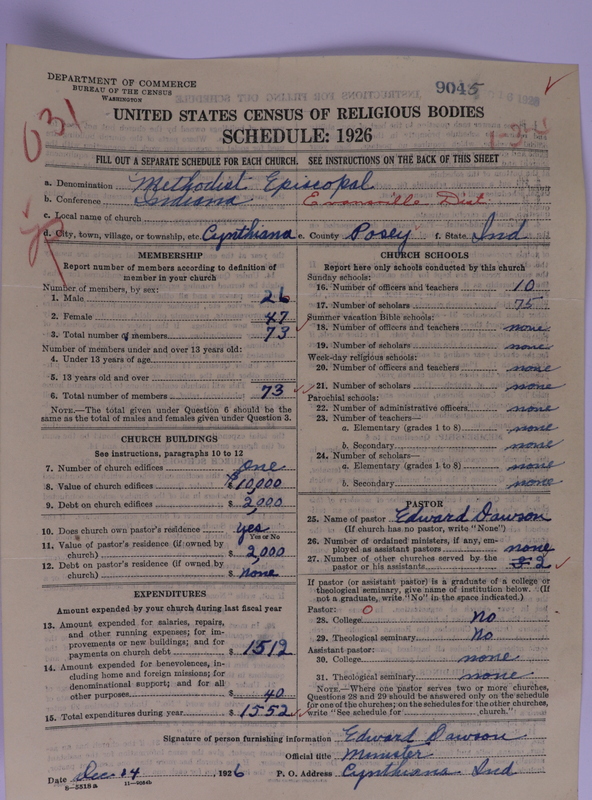 DEPARTMENT OF COMMERCE
BUREAU OF THE CENSUS
WASHINGTON
9045
631
1-34
UNITED STATES CENSUS OF RELIGIOUS BODIES
SCHEDULE: 1926
FILL OUT A SEPARATE SCHEDULE FOR EACH CHURCH. SEE INSTRUCTIONS ON THE BACK OF THIS SHEET
a. Denomination Methodist Episcopal
b. Conference Indiana Evansville Dist.
c. Local name of church
d. City, town, village, or township, etc. Cynthiana e. County Posey f. State Ind
MEMBERSHIP
Report number of members according to definition of
member in your church
Number of members, by sex:
1. Male 26
2. Female 47
3. Total number of members 73
Number of members under and over 13 years old:
4. Under 13 years of age
5. 13 years old and over
6. Total number of members 73
NOTE.—The total given under Question 6 should be the
same as the total of males and females given under Question 3.
CHURCH BUILDINGS
See instructions, paragraphs 10 to 12
7. Number of church edifices One
8. Value of church edifices $10,000
9. Debt on church edifices $2,000
10. Does church own pastor's residence yes
Yes or No
11. Value of pastor's residence (if owned by
church) $2,000
12. Debt on pastor's residence (if owned by
church) $none
EXPENDITURES
Amount expended by your church during last fiscal year
13. Amount expended for salaries, repairs,
and other running expenses; for im-
provements or new buildings; and for
payments on church debt $1512
14. Amount expended for benevolences, in-
cluding home and foreign missions; for
denominational support; and for all
other purposes $40
15. Total expenditures during year $1552
CHURCH SCHOOLS
Report here only schools conducted by this church
Sunday schools:
16. Number of officers and teachers 10
17. Number of scholars 75
Summer vacation Bible schools:
18. Number of officers and teachers none
19. Number of scholars none
Week-day religious schools:
20. Number of officers and teachers none
21. Number of scholars none
Parochial schools:
22. Number of administrative officers none
23. Number of teachers—
a. Elementary (grades 1 to 8) none
b. Secondary none
24. Number of scholars—
a. Elementary (grades 1 to 8) none
b. Secondary none
PASTOR
25. Name of pastor Edward Dawson
(If church has no pastor, write "None")
26. Number of ordained ministers, if any, em-
ployed as assistant pastors none
27. Number of other churches served by the
pastor or his assistants 2
If pastor (or assistant pastor) is a graduate of a college or
theological seminary, give name of institution below. (If
not a graduate, write "No" in the space indicated.)
Pastor: O
28. College No
29. Theological seminary No
Assistant pastor:
30. College none
31. Theological seminary none
NOTE.—Where one pastor serves two or more churches,
Questions 28 and 29 should be answered only on the schedule
for one of the churches; on the schedules for the other churches,
write "See schedule for church."
Signature of person furnishing information Edward Dawson
Official title Minister
Date Dec 14, 1926 P. O. Address Cynthiana Ind
8-5518a 11-9054b